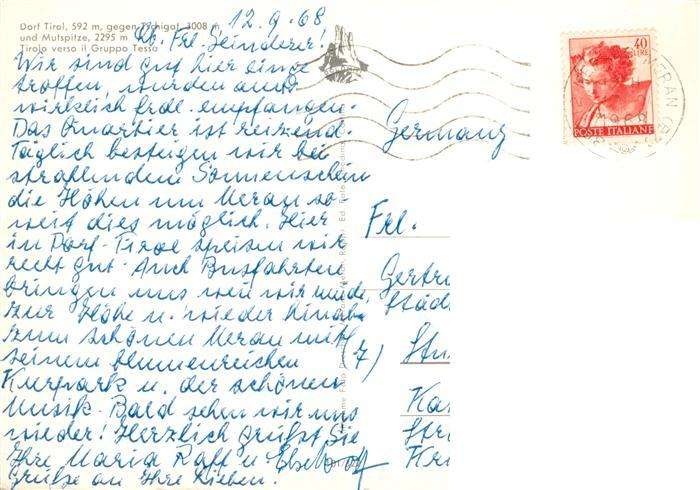 Dorf Tirol, 592 m, gegen Tschigat, 3008 m
und Mutspitze, 2295 m
Tirolo verso il Gruppo Tessa
12.9.68
Lb. Frl.
Wir sind gut hier einge
troffen, wurden auch
wirklich frdl. empfangen.
Das Quartier ist reizend.
Täglich besteigen wir bei
strahlendem Sonnenschein
die Höhen um Meran so
weit dies möglich. Hier
in Dorf-Tirol speisen wir
recht gut. Auch Busfahrten
bringen uns wenn wir müde,
zur Höhe u. wieder hinab
zum schönen Meran mit
seinem blumenreichen
Kurpark u. der schönen
Musik. Bald sehen wir uns
wieder! Herzlich grüßt Sie
Ihre Maria Raff u.
Grüße an Ihre Lieben!
40
LIRE
POSTE ITALIANE
Germany
Frl.
Gertru
Städ
(7) Stu
Ka
Str
Kr